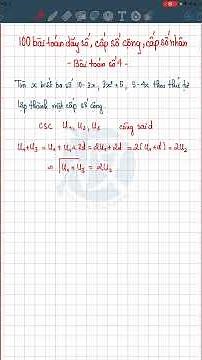 100 bài toán dãy số, cấp số cộng, cấp số nhân
- Bài toán số 1 -
Tìm x biết ba số 10-3x, 2x²+3, 5-4x theo thứ tự
lập thành một cấp số cộng.
CSC U₁, U₂, U₃ công sai d
U₁+U₃ = U₁+U₁+2d = 2U₁+2d = 2(U₁+d) = 2U₂
⇒ U₁+U₃ = 2U₂